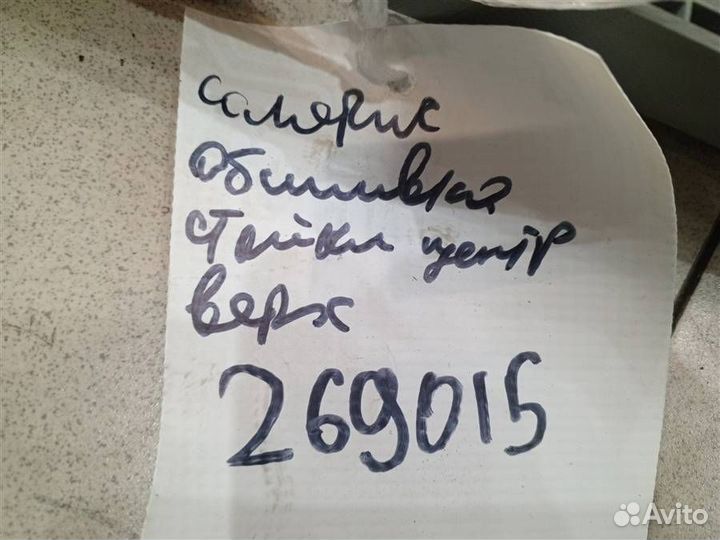 солярис
Обшивка
стойки центр
верх
269015
Avito